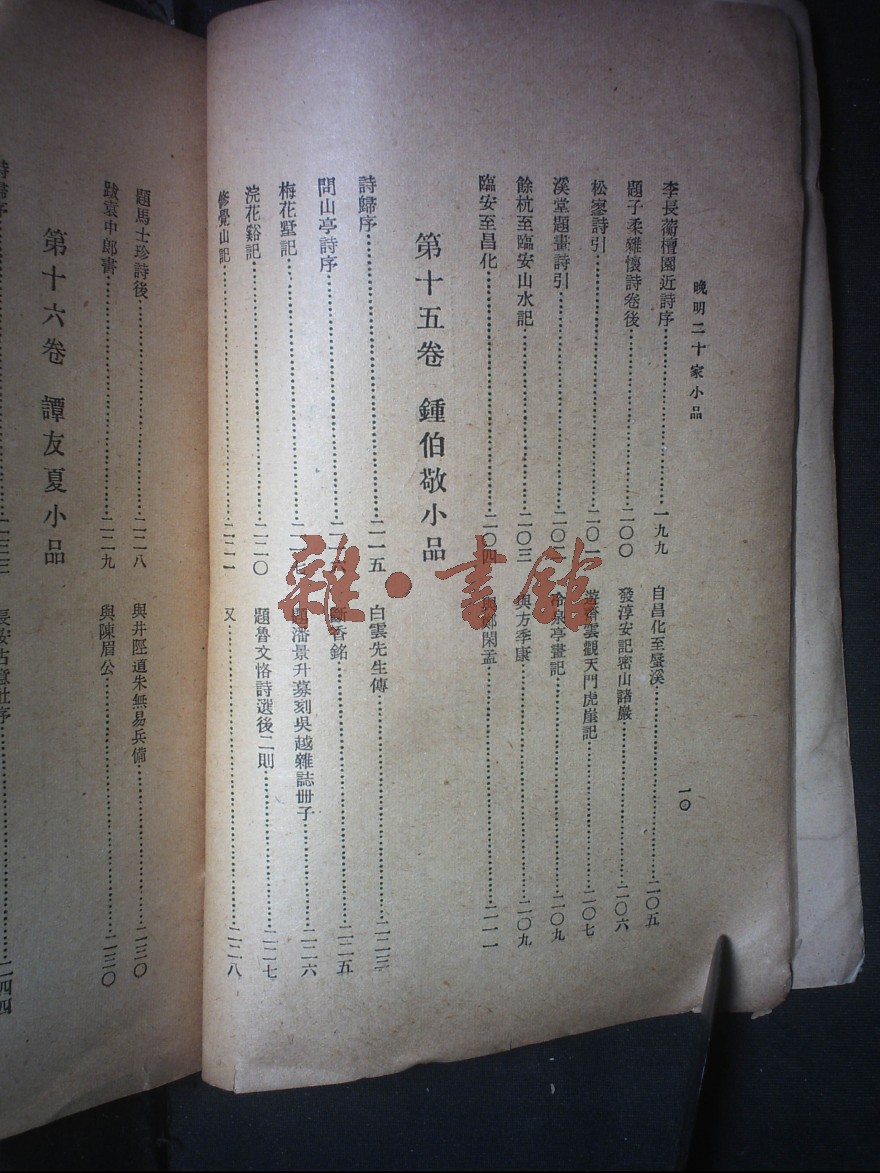 晚明二十家小品
一〇
李長蘅檀園近詩序……一九九
自昌化至螢溪……二〇五
題子柔雜懷詩卷後……二〇〇
發淳安記密山諸巖……二〇六
松寥詩引……二〇一
遊齊雲觀天門虎崖記……二〇七
溪堂題畫詩引……二〇二
冷泉亭畫記……二〇九
餘杭至臨安山水記……二〇三
與方季康……二〇九
臨安至昌化……二〇四
與鄭閑孟……二一一
第十五卷 鍾伯敬小品
詩歸序……二一五
白雲先生傳……二二三
問山亭詩序……二一六
斷香銘……二二五
梅花墅記……二一七
題潘景升募刻吳越雜誌冊子……二二六
浣花谿記……二二〇
題魯文恪詩選後二則……二二七
修覺山記……二二一
又……二二八
題馬士珍詩後……二二八
與井陘道朱無易兵備……二三〇
跋袁中郎書……二二九
與陳眉公……二三〇
第十六卷 譚友夏小品
詩歸序……二三三
二四四
雜·書館